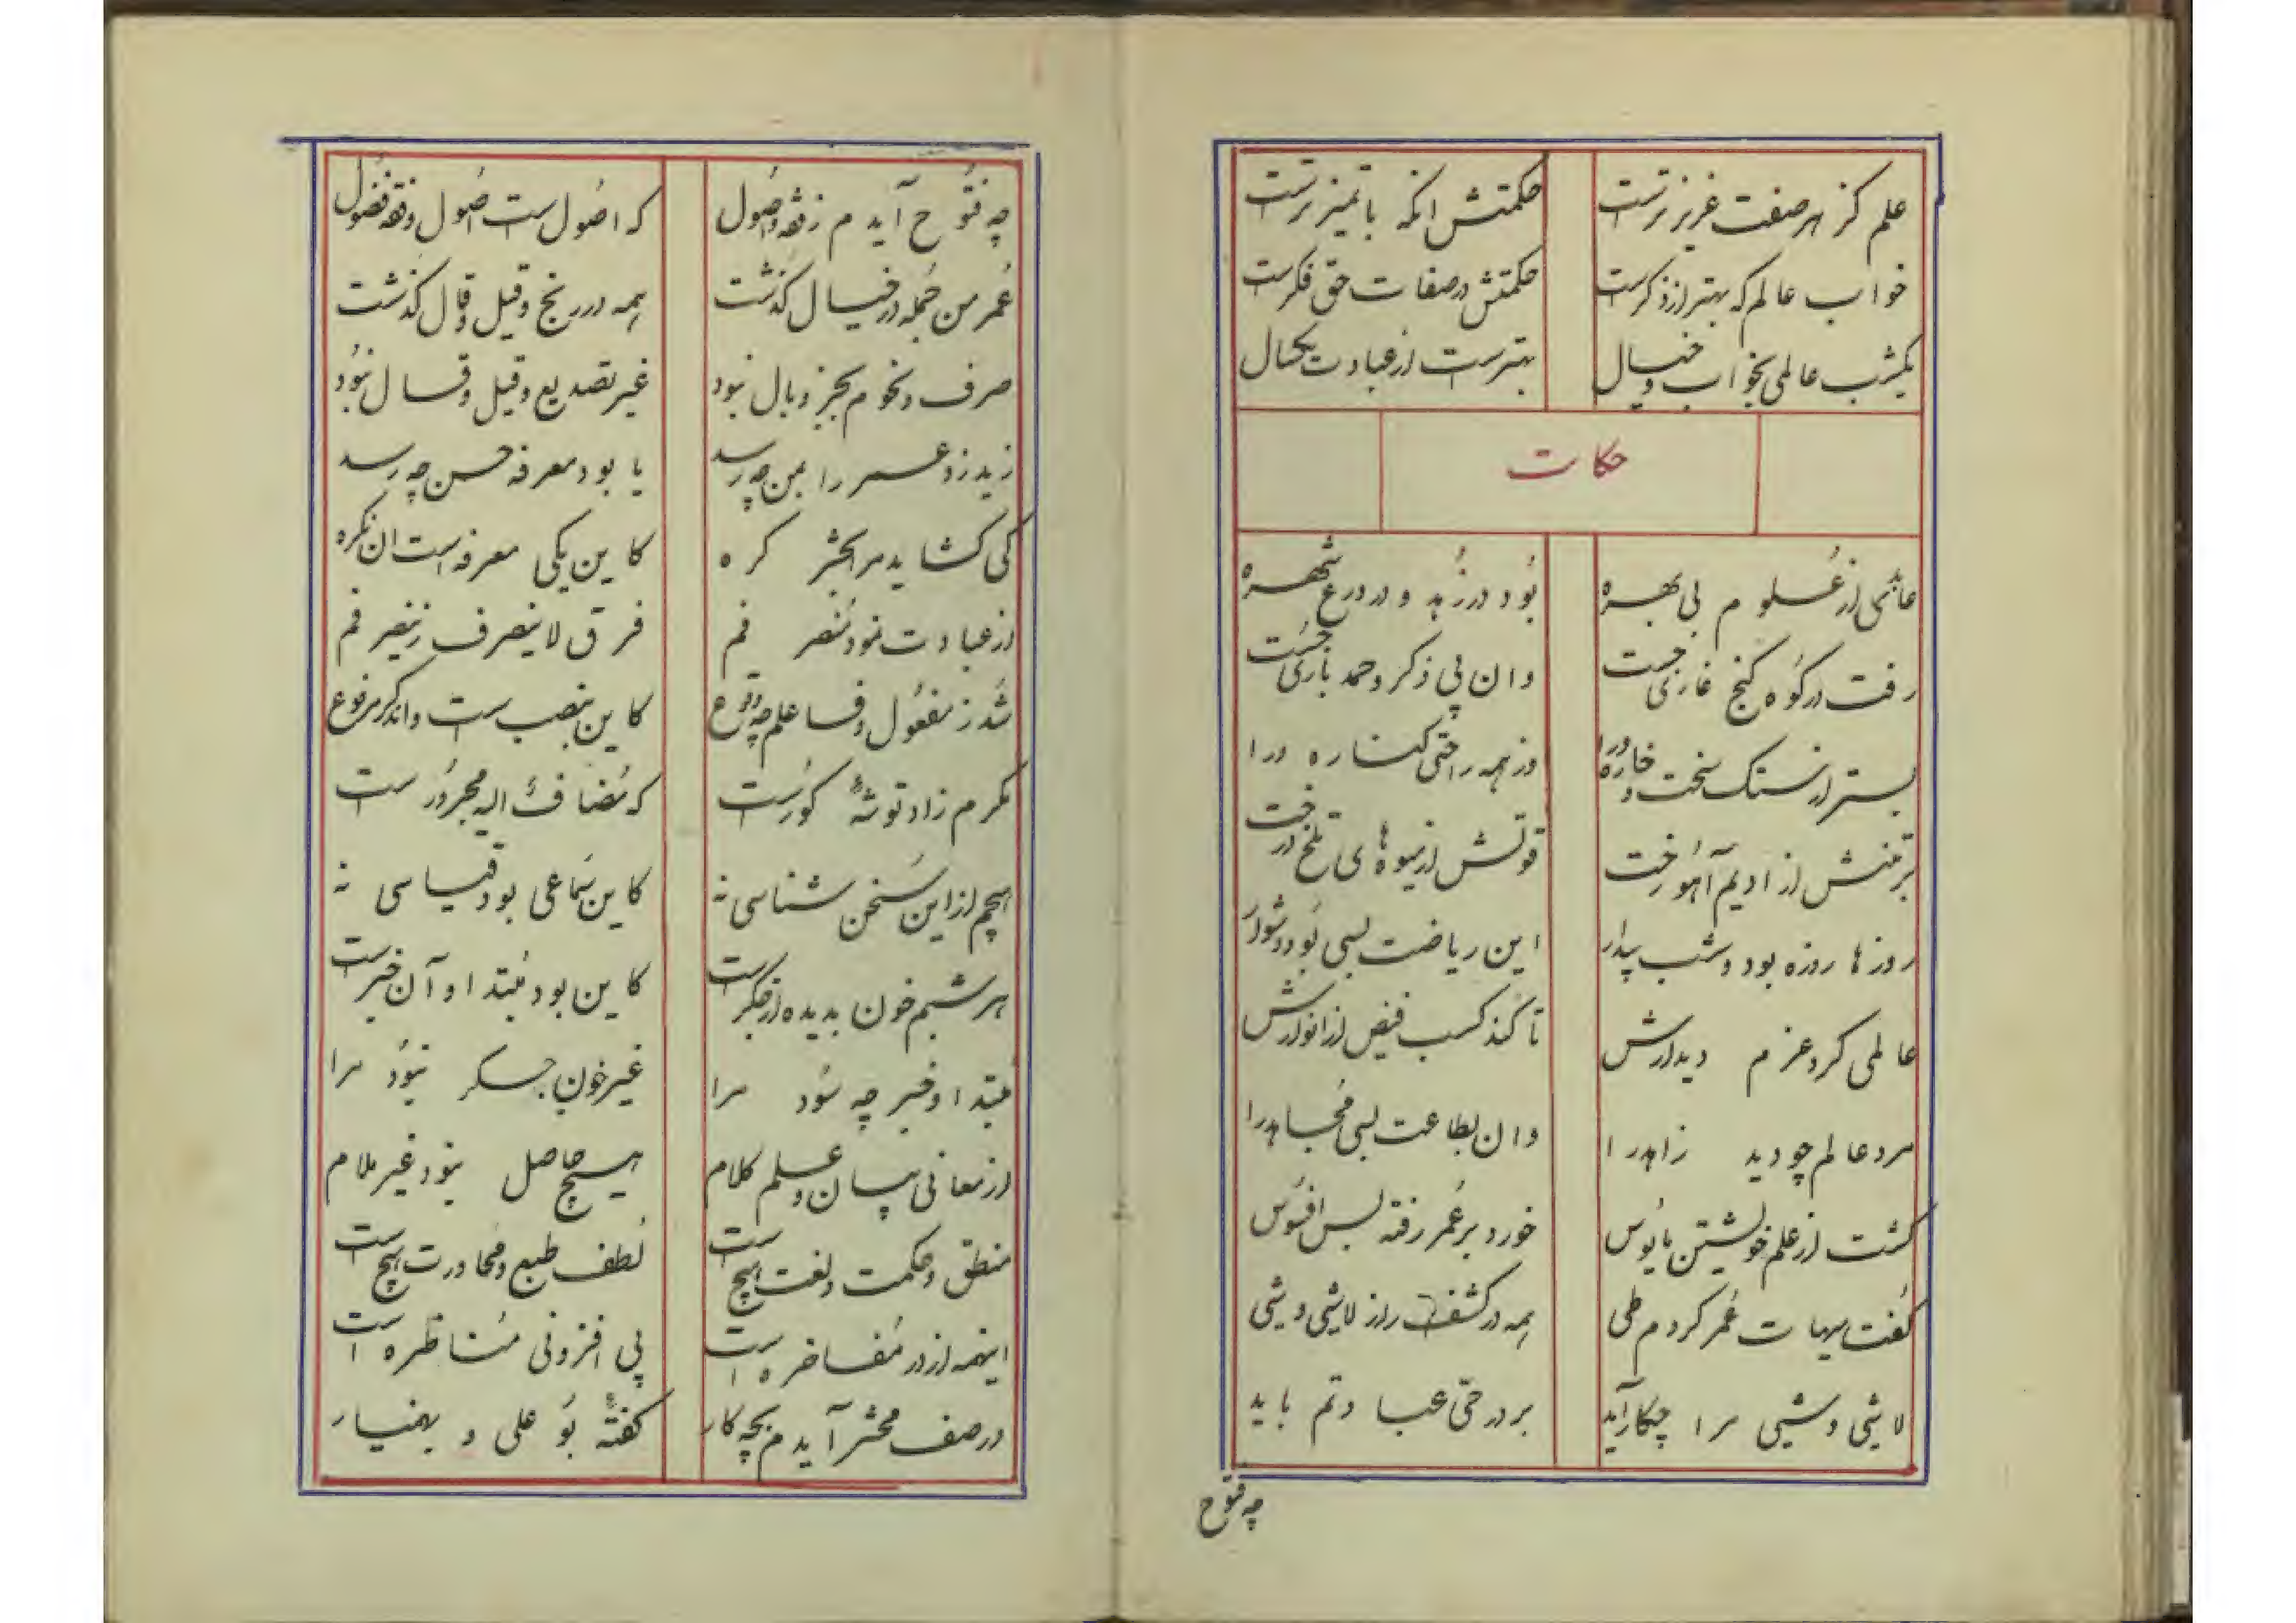 علم کز هر صفت عزیزترست حکمتش انکه باتمیزترست
خواب عالم که بهتر از ذکرست حکمتش در صفات حق فکرست
یکشب عالمی بخواب و خیال بهترست از عبادت یکسال
حکات
عابدی از علوم بی بهره بود در زهد و در ورع شهره
رفت در کوه کنج غاری جست وان پی ذکر و حمد باری جست
بستر از سنک سخت و خاره ورا وز همه راحتی کناره ورا
بر تنش از ادیم آهو رخت قوتش از میوه های تلخ درخت
روزها روزه بود و شب بیدار این ریاضت بسی بود دشوار
عالمی کرد عزم دیدارش تا کند کسب فیض از انوارش
مرد عالم چو دید زاهد را وان بطاعت بسی مجاهد را
کشت از علم خویشتن مایوس خورد بر عمر رفته بس افسوس
کفت هیهات عمر کردم طی همه در کشف راز لاشی و شی
لاشی و شیی مرا چکار آید بر در حق عبادتم باید
چه فتوح
چه فتوح آیدم ز فقه و اصول که اصول است اصول و فقه فضول
عمر من جمله در خیال کذشت همه در رنج و قیل و قال کذشت
صرف و نحوم بجز وبال نبود غیر تصدیع و قیل و قال نبود
زید زد عمر را بمن چه رسد یا بود معرفه حسن چه رسد
کی کشاید مرا بحشر کره کاین یکی معرفه است ان نکره
از عبادت نمود منصرفم فرق لاینصرف ز ینصرفم
شد ز مفعول و فاعلم چه وقوع کاین بنصب است واندکر مرفوع
مکرم زاد توشهٔ کورست که مضاف الیه مجرورست
هیچم از این سخن شناسی نه کاین سماعی بود قیاسی نه
هر شبم خون بدیده از جکرست کاین بود مبتدا و آن خبرست
مبتدا و خبر چه سود مرا غیر خون جکر نبود مرا
از معانی بیان و علم کلام هیچ حاصل نبود غیر ملام
منطق و حکمت و لغت هیچ است لطف طبع و محاورت هیچ است
اینهمه از در مفاخره است پی افزونی مناظره است
در صف محشر آیدم بچه کار کفتهٔ بو علی و بهمنیار